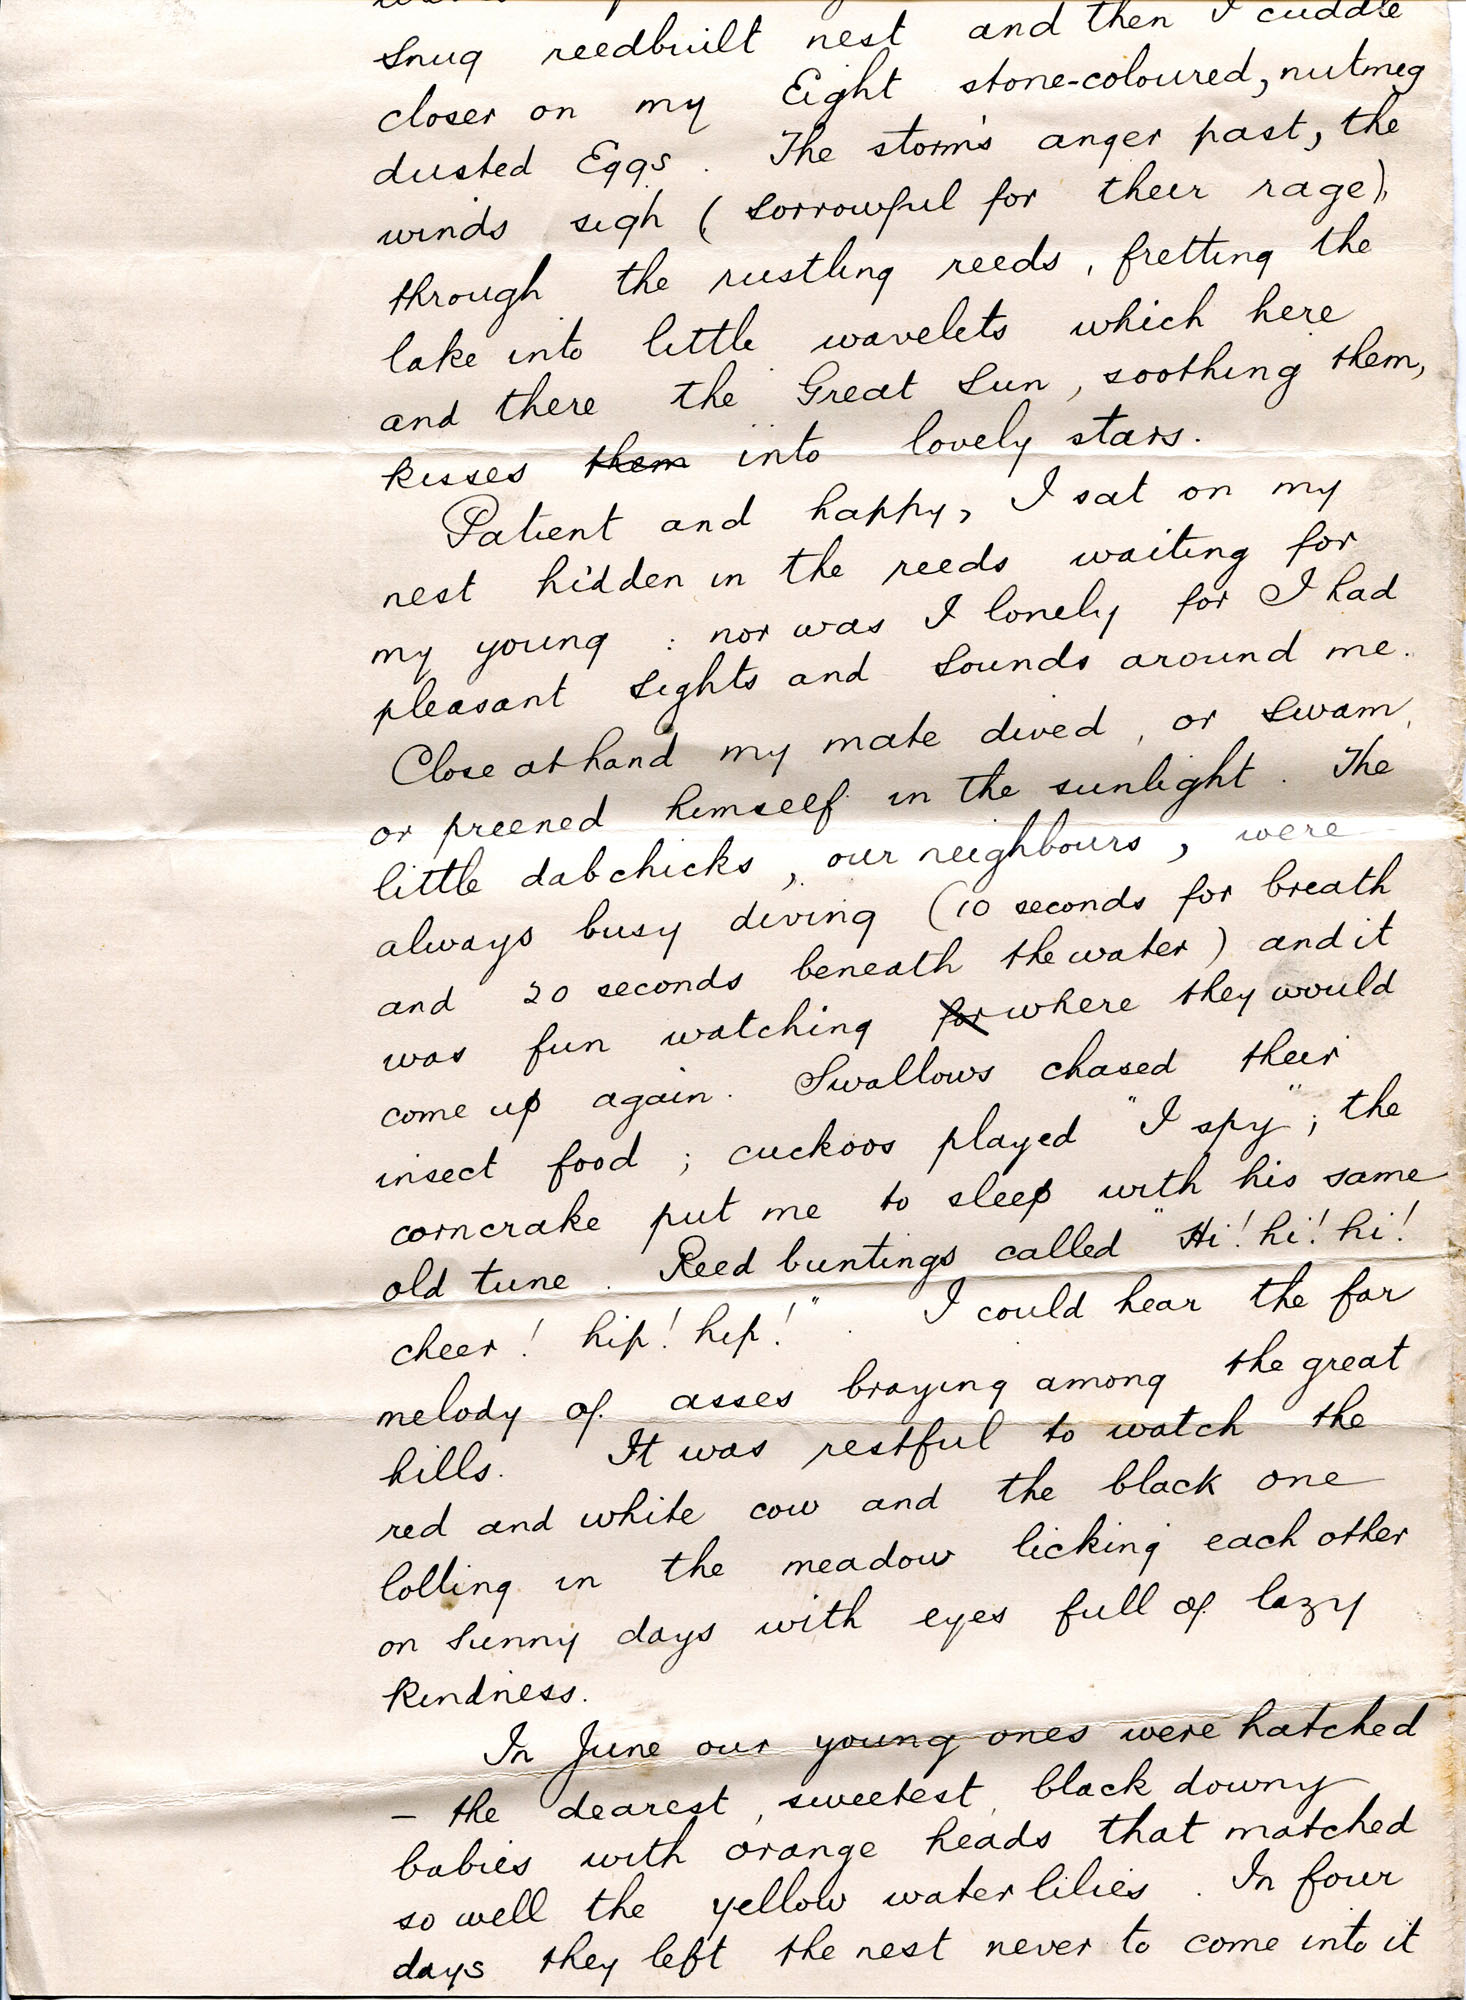 snug reedbuilt nest and then I cuddle
closer on my Eight stone-coloured, nutmeg
dusted Eggs. The storm's anger past, the
winds sigh (sorrowful for their rage),
through the rustling reeds, fretting the
lake into little wavelets which here
and there the Great Sun, soothing them,
kisses them into lovely stars.
Patient and happy, I sat on my
nest hidden in the reeds waiting for
my young : nor was I lonely for I had
pleasant sights and sounds around me.
Close at hand my mate dived, or swam,
or preened himself in the sunlight. The
little dabchicks, our neighbours, were
always busy diving (10 seconds for breath
and 20 seconds beneath the water) and it
was fun watching for where they would
come up again. Swallows chased their
insect food ; cuckoos played "I spy" ; the
corncrake put me to sleep with his same
old tune. Reed buntings called "Hi! hi! hi!
cheer! hip! hip!". I could hear the far
melody of asses braying among the great
hills. It was restful to watch the
red and white cow and the black one
lolling in the meadow licking each other
on sunny days with eyes full of lazy
kindness.
In June our young ones were hatched
- the dearest, sweetest, black downy
babies with orange heads that matched
so well the yellow water lilies. In four
days they left the nest never to come into it